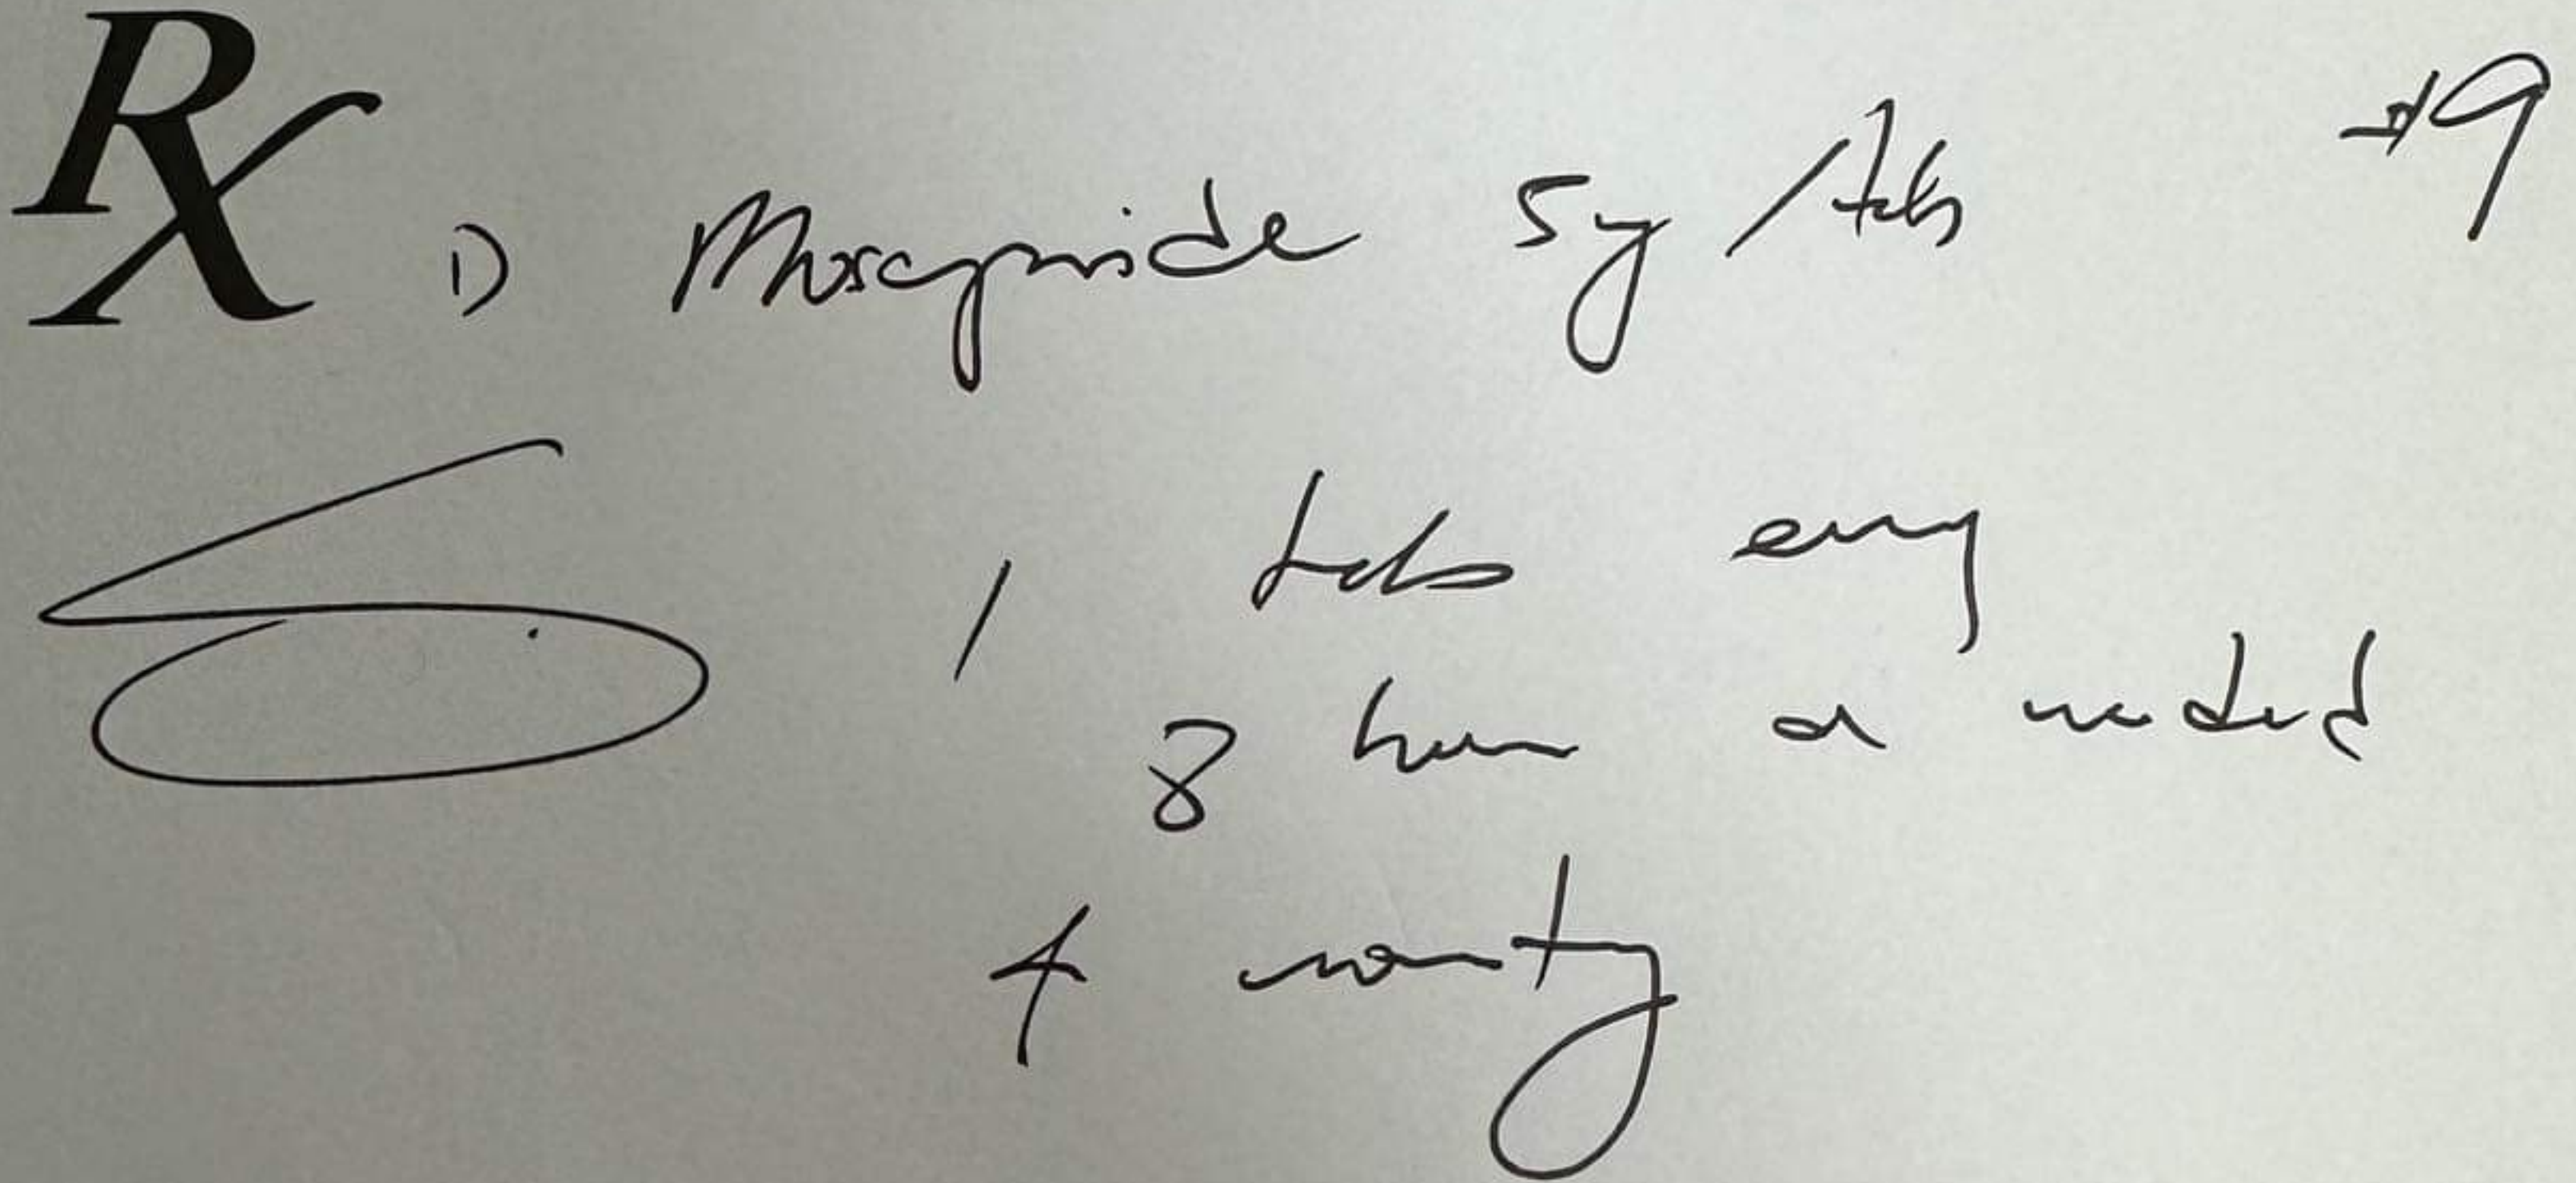 Rx
1) Mosapride 5mg /tab #9
1 tab every
8 hours as needed
4 vomiting